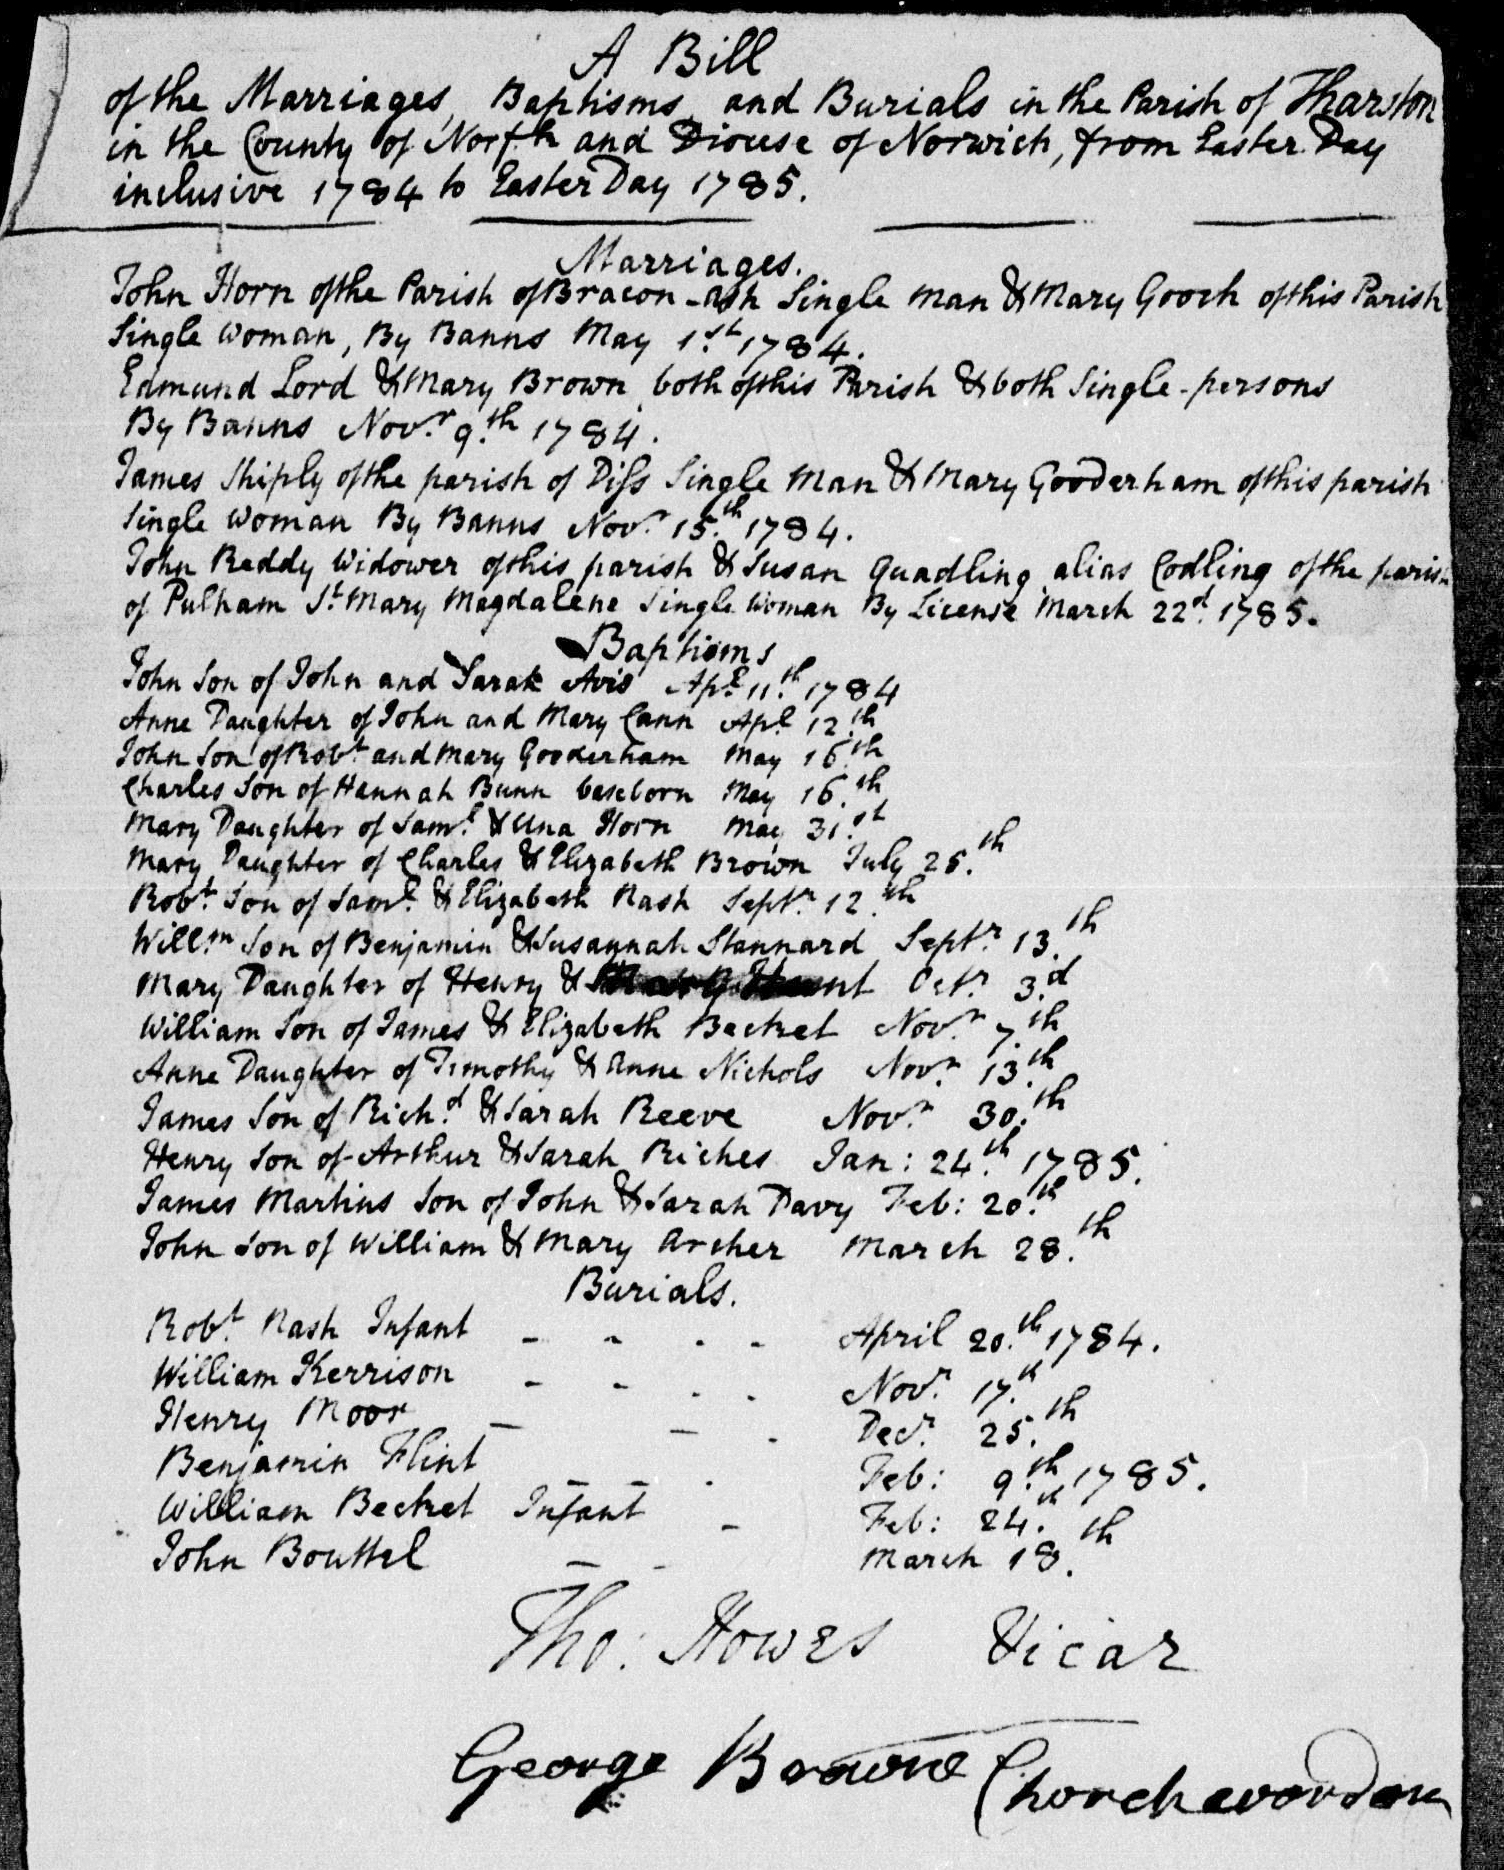 A Bill
of the Marriages, Baptisms, and Burials in the Parish of Tharston
in the County of Norfk and Diocese of Norwich, from Easter Day
inclusive 1784 to Easter Day 1785.
Marriages.
John Horn of the Parish of Bracon-Ash Single man & Mary Gooch of this Parish
Single woman, By Banns May 1.st 1784.
Edmund Lord & Mary Brown both of this Parish & both Single-persons
By Banns Nov.r 9.th 1784.
James Shiply of the parish of Diss Single Man & Mary Gooderham of this parish
Single woman By Banns Nov.r 15.th 1784.
John Reddy Widower of this parish & Susan Quadling alias Codling of the parish
of Pulham St. Mary Magdalene Single Woman By License March 22.d 1785.
Baptisms
John Son of John and Sarah Avis Ap.l 11.th 1784
Anne Daughter of John and Mary Cann Ap.l 12.th
John Son of Rob.t and Mary Gooderham May 16.th
Charles Son of Hannah Bunn baseborn May 16.th
Mary Daughter of Sam.l & Una Horn May 31.st
Mary Daughter of Charles & Elizabeth Brown July 25.th
Rob.t Son of Sam.l & Elizabeth Nash Sept.r 12.th
Will.m Son of Benjamin & Susannah Stannard Sept.r 13.th
Mary Daughter of Henry & Oct.r 3.d
William Son of James & Elizabeth Becket Nov.r 7.th
Anne Daughter of Timothy & Anne Nichols Nov.r 13.th
James Son of Rich.d & Sarah Reeve Nov.r 30.th
Henry Son of Arthur & Sarah Riches Jan: 24.th 1785.
James Martins Son of John & Sarah Davy Feb: 20.th
John Son of William & Mary Archer March 28.th
Burials.
Rob.t Nash Infant - - - - April 20.th 1784.
William Kerrison - - - - Nov.r 17.th
Henry Moor - - - Dec.r 25.th
Benjamin Flint - - - Feb: 9.th 1785.
William Becket Infant - Feb: 24.th
John Bouttel - - March 18.th
Tho: Howes Vicar
George Browne Chorchwordan